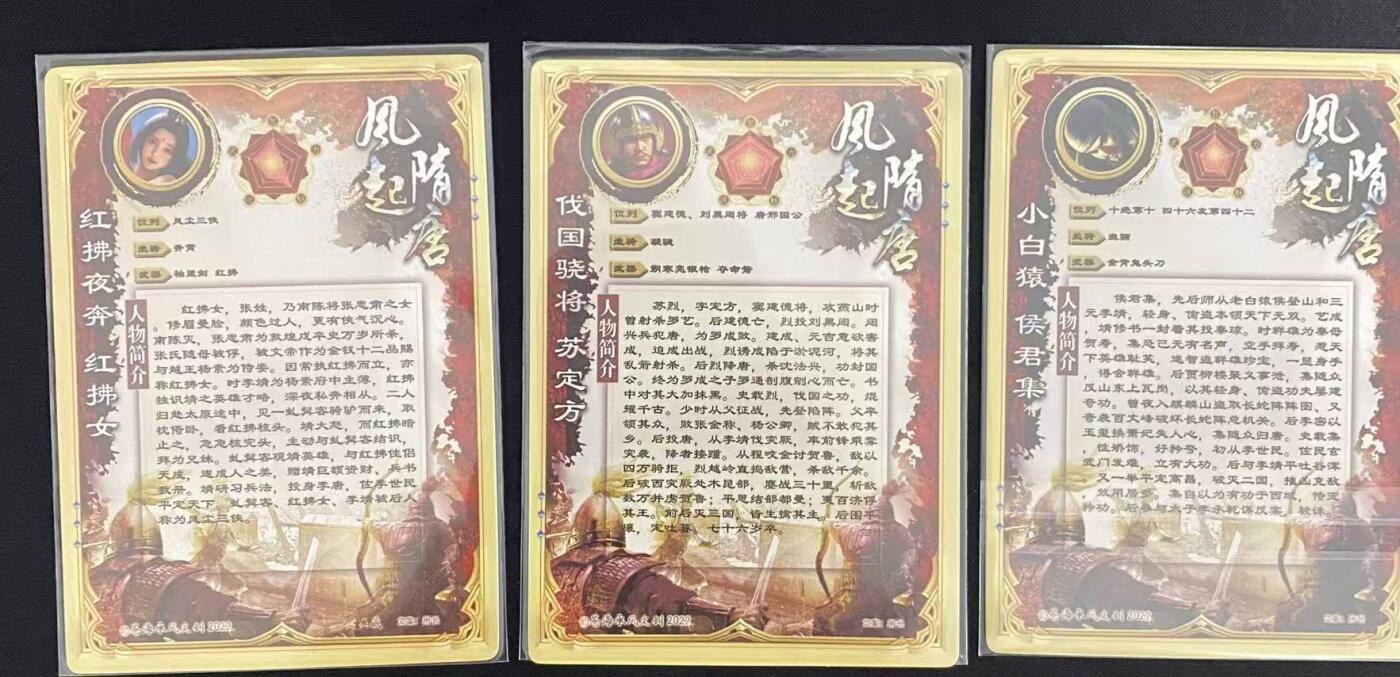 風起隋唐
红拂夜奔 红拂女
位列 风尘三侠
坐骑 奔霄
武器 红拂
人物简介
红拂女，张姓，乃南陈将张忠肃之女
。修眉曼脸，颜色过人，更有侠气沉心。
南陈灭，张忠肃为敦煌戍卒史万岁所杀，
张氏随母被俘，被文帝作为金钗十二品赐
与越王杨素为侍妾。因常执红拂而立，亦
称红拂女。时李靖为杨素府中主薄，红拂
独识靖之英雄才略，深夜私奔相从。二人
归赴太原途中，见一虬髯客骑驴而来，取
枕倚卧，看红拂梳头。靖大怒，而红拂暗
止之，急急梳完头，主动与虬髯客结识，
拜为兄妹。虬髯客观靖英雄，与红拂佳侣
天成，遂成人之美，赠靖巨额资财、兵书
数册。靖研习兵法，投身李唐，佐李世民
平定天下。虬髯客、红拂女、李靖被后人
称为风尘三侠。
©苍海米风文创 2022
典藏
風起隋唐
伐国骁将 苏定方
位列 窦建德、刘黑闼将 唐邢国公
坐骑
武器 朔寒亮银枪 夺命箭
人物简介
苏烈，字定方，窦建德将，攻燕山时
曾射杀罗艺。后建德亡，烈投刘黑闼。闼
兴兵犯唐，为罗成败。建成、元吉意欲害
成，迫成出战，烈诱成陷于淤泥河，将其
乱箭射杀。后烈降唐，杀沈法兴，功封国
公。终为罗成之子罗通剖腹剜心而亡。书
中对其大加抹黑。史载烈，伐国之功，焜
耀千古。少时从父征战，先登陷阵。父卒
领其众，败张金称、杨公卿，贼不敢犯其
乡。后投唐，从李靖伐突厥，率前锋乘雾
突袭，降者接踵。从程咬金讨贺鲁，敌以
四万骑拒，烈越岭直捣敌营，杀敌千余。
后破西突厥处木昆部，鏖战三十里，斩敌
数万并虏贺鲁；平思结部都曼；东百济俘
其王。前后灭三国，皆生擒其主。后围平
壤，定吐蕃，七十六岁卒。
©苍海米风文创 2022
風起隋唐
小白猿 侯君集
位列 十绝第十 四十六友第四十二
坐骑 盗骊
武器 金背鬼头刀
人物简介
侯君集，先后师从老白猿侯登山和三
元李靖，轻身、偷盗本领天下无双。艺成
，靖修书一封着其投秦琼。时群雄为秦母
贺寿，集总已无有名声，空手拜寿，惹天
下英雄耻笑，遂智盗群雄珍宝，一显身手
，得会群雄。后贾柳楼聚义事泄，集随众
反山东上瓦岗，以其轻身、偷盗功夫屡建
奇功。曾夜入麒麟山盗取长蛇阵阵图、又
奇袭百丈峰破坏长蛇阵总机关。后李密以
玉玺换萧妃失人心，集随众归唐。史载集
突，性矫饰，好矜夸，初从李世民。佐民玄
武门发难，立有大功。后与李靖平吐谷浑
，又一举平定高昌，破灭二国，摧凶克敌
，效用居多。集自以为有功于西域，恃宠
矜功。后参与太子李承乾谋反案，被诛。
©苍海米风文创 2022